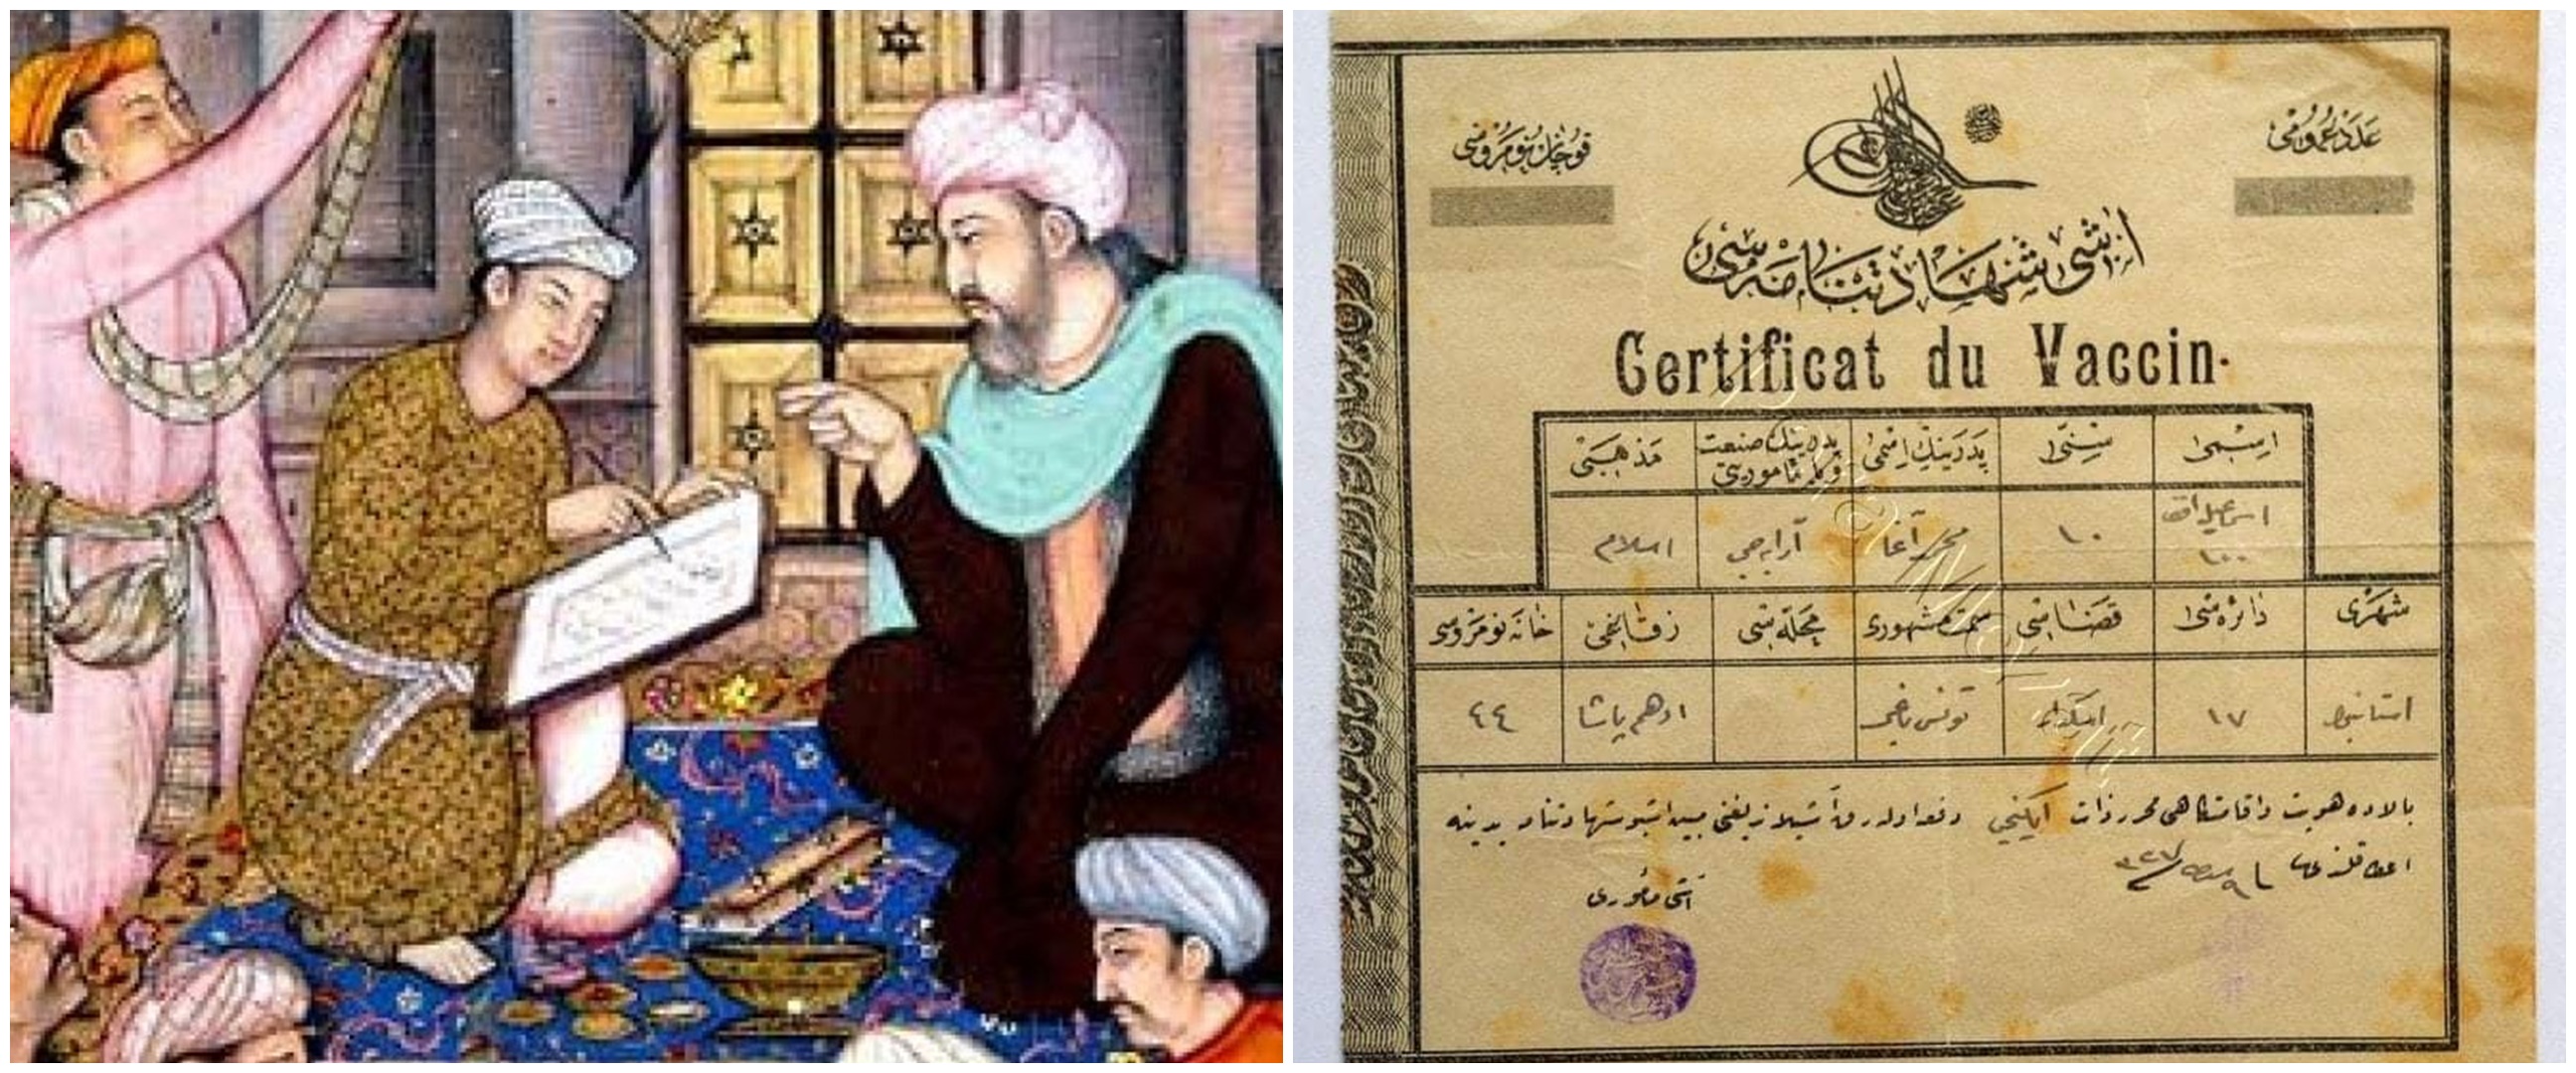 عدد عمومی
قوچان نومروسی
آشی شهادتنامه‌سی
Certificat du Vaccin.
اسمی سنی پدرینك اسمی پدرینك صنعت مذهبی
اسماعیل ١٠ محمد آغا آرابه جی اسلام
١٠٠
شهری دائره‌سی قضاسی سمت مشهوری محله‌سی زقاغی خانه نومروسی
استانبول ١٧ اسکدار تونس باغی ادهم پاشا ٤٤
بالاده هویت واقامتکاهی محرر ذات ایکنجی دفعه اوله‌رق آشیلانیلدیغنی مبین اشبو شهادتنامه یدینه
اعطا قلندی
آشی مأموری